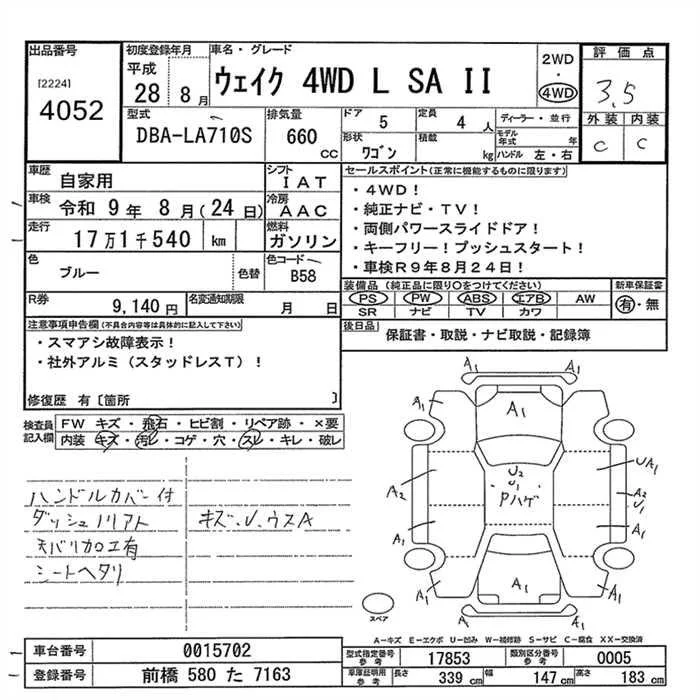 出品番号
[2224]
4052
初度登録年月
平成
28 8月
車名・グレード
ウェイク 4WD L SA II
2WD
・
4WD
評価点
3.5
外装 内装
C C
型式
DBA-LA710S
排気量
660
CC
ドア 5
定員 4 人
形状 ワゴン
積載 kg
ディーラー・並行
モデル年式 年
ハンドル 左・右
車歴 自家用
シフト IAT
車検 令和 9年 8月(24日)
冷房 AAC
走行 17万1千540 km
燃料 ガソリン
色 ブルー 色替
色コード B58
R券 9,140円
名変通知期限 月 日
セールスポイント(正常に機能するものに限ります)
・4WD!
・純正ナビ・TV!
・両側パワースライドドア!
・キーフリー!プッシュスタート!
・車検R9年8月24日!
装備品(純正品に限り○をつけてください)
PS PW ABS エアB AW
SR ナビ TV カワ
新車保証書
有・無
後日品 保証書・取説・ナビ取説・記録簿
注意事項申告欄(不具合内容等は具体的に記入して下さい)
・スマアシ故障表示!
・社外アルミ(スタッドレスT)!
修復歴 有〔箇所 〕
検査員記入欄
FW キズ・飛石・ヒビ割・リペア跡・×要
内装 キズ・汚レ・コゲ・穴・スレ・キレ・破レ
ハンドルカバー付
ダッシュノリアト
天バリカロエ有
シートヘタリ
キズ.U.ウスA
A1
A1 A1 A1
U2
U1
Pハゲ
A2
UA1
A2
U1
A1 A1
A1 A1 A1
A1
スペア
A−キズ E−エクボ U−凹み W−補修跡 S−サビ C−腐食 XX−交換済
車台番号 0015702
登録番号 前橋 580 た 7163
型式指定番号 参考 17853
類別区分番号 参考 0005
車庫証明用 参考 長さ 339 cm 幅 147 cm 高さ 183 cm